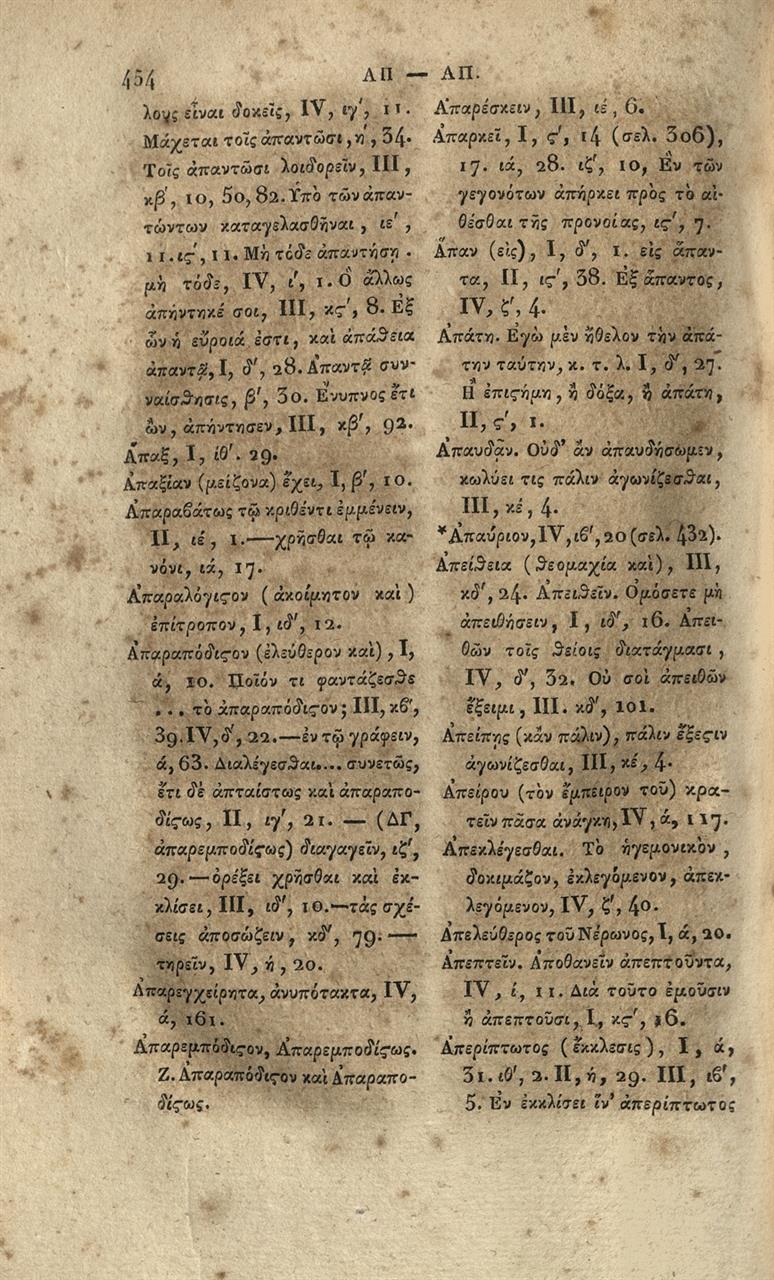 454
ΑΠ — ΑΠ.
λους εἶναι δοκεῖς, IV, ιγ΄, 11.
Μάχεται τοῖς ἀπαντῶσι, ή, 34.
Τοῖς ἀπαντῶσι λοιδορεῖν, III,
κβ΄, 10, 50, 82. Ὑπὸ τῶν ἀπαν-
τώντων καταγελασθῆναι, ιε΄,
11. ις΄, 11. Μὴ τόδε ἀπαντήσῃ.
μὴ τόδε, IV, ί, 1. Ὃ ἄλλως
ἀπήντηκέ σοι, III, κς΄, 8. Ἐξ
ὧν ἡ εὔροιά ἐστι, καὶ ἀπάθεια
ἀπαντᾷ, I, δ΄, 28. Ἀπαντᾷ συν-
ναίσθησις, β΄, 30. Ἔνυπνος ἔτι
ὢν, ἀπήντησεν, III, κβ΄, 92.
Ἅπαξ, I, ιθ΄. 29.
Ἀπαξίαν (μείζονα) ἔχει, I, β΄, 10.
Ἀπαραβάτως τῷ κριθέντι ἐμμένειν,
II, ιέ, 1.—χρῆσθαι τῷ κα-
νόνι, ιά, 17.
Ἀπαραλόγιστον (ἀκοίμητον καὶ)
ἐπίτροπον, I, ιδ΄, 12.
Ἀπαραπόδιστον (ἐλεύθερον καὶ), I,
ά, 10. Ποῖόν τι φαντάζεσθε
... τὸ ἀπαραπόδιστον; III, κβ΄,
39. IV, δ΄, 22.—ἐν τῷ γράφειν,
ά, 63. Διαλέγεσθαι.... συνετῶς,
ἔτι δὲ ἀπταίστως καὶ ἀπαραπο-
δίστως, II, ιγ΄, 21. — (ΔΓ,
ἀπαρεμποδίστως) διαγαγεῖν, ιζ΄,
29.—ὀρέξει χρῆσθαι καὶ ἐκ-
κλίσει, III, ιδ΄, 10.—τὰς σχέ-
σεις ἀποσώζειν, κδ΄, 79.—
τηρεῖν, IV, ή, 20.
Ἀπαρεγχείρητα, ἀνυπότακτα, IV,
ά, 161.
Ἀπαρεμπόδιστον, Ἀπαρεμποδίστως.
Ζ. Ἀπαραπόδιστον καὶ Ἀπαραπο-
δίστως.
Ἀπαρέσκειν, III, ιέ, 6.
Ἀπαρκεῖ, I, ς΄, 14 (σελ. 306),
17. ιά, 28. ιζ΄, 10, Ἓν τῶν
γεγονότων ἀπήρκει πρὸς τὸ αἰ-
θέσθαι τῆς προνοίας, ις΄, 7.
Ἅπαν (εἰς), I, δ΄, 1. εἰς ἅπαν-
τα, II, ις΄, 38. Ἐξ ἅπαντος,
IV, ζ΄, 4.
Ἀπάτη. Ἐγὼ μὲν ἤθελον τὴν ἀπά-
την ταύτην, κ. τ. λ. I, δ΄, 27.
Ἢ ἐπιστήμη, ἢ δόξα, ἢ ἀπάτη,
II, ς΄, 1.
Ἀπαυδᾷν. Οὐδ’ ἂν ἀπαυδήσωμεν,
κωλύει τις πάλιν ἀγωνίζεσθαι,
III, κέ, 4.
*Ἀπαύριον, IV, ιβ΄, 20 (σελ. 432).
Ἀπείθεια (θεομαχία καὶ), III,
κδ΄, 24. Ἀπειθεῖν. Ὀμόσετε μὴ
ἀπειθήσειν, I, ιδ΄, 16. Ἀπει-
θῶν τοῖς θείοις διατάγμασι,
IV, δ΄, 32. Οὐ σοὶ ἀπειθῶν
ἔξειμι, III. κδ΄, 101.
Ἀπείπης (κἂν πάλιν), πάλιν ἔξεστιν
ἀγωνίζεσθαι, III, κέ, 4.
Ἀπείρου (τὸν ἔμπειρον τοῦ) κρα-
τεῖν πᾶσα ἀνάγκη, IV, ά, 117.
Ἀπεκλέγεσθαι. Τὸ ἡγεμονικὸν,
δοκιμάζον, ἐκλεγόμενον, ἀπεκ-
λεγόμενον, IV, ζ΄, 40.
Ἀπελεύθερος τοῦ Νέρωνος, I, ά, 20.
Ἀπεπτεῖν. Ἀποθανεῖν ἀπεπτοῦντα,
IV, ί, 11. Διὰ τοῦτο ἐμοῦσιν
ἢ ἀπεπτοῦσι, I, κς΄, 16.
Ἀπερίπτωτος (ἔκκλεσις), I, ά,
31. ιθ΄, 2. II, ή, 29. III, ιβ΄,
5. Ἐν ἐκκλίσει ἵν’ ἀπερίπτωτος